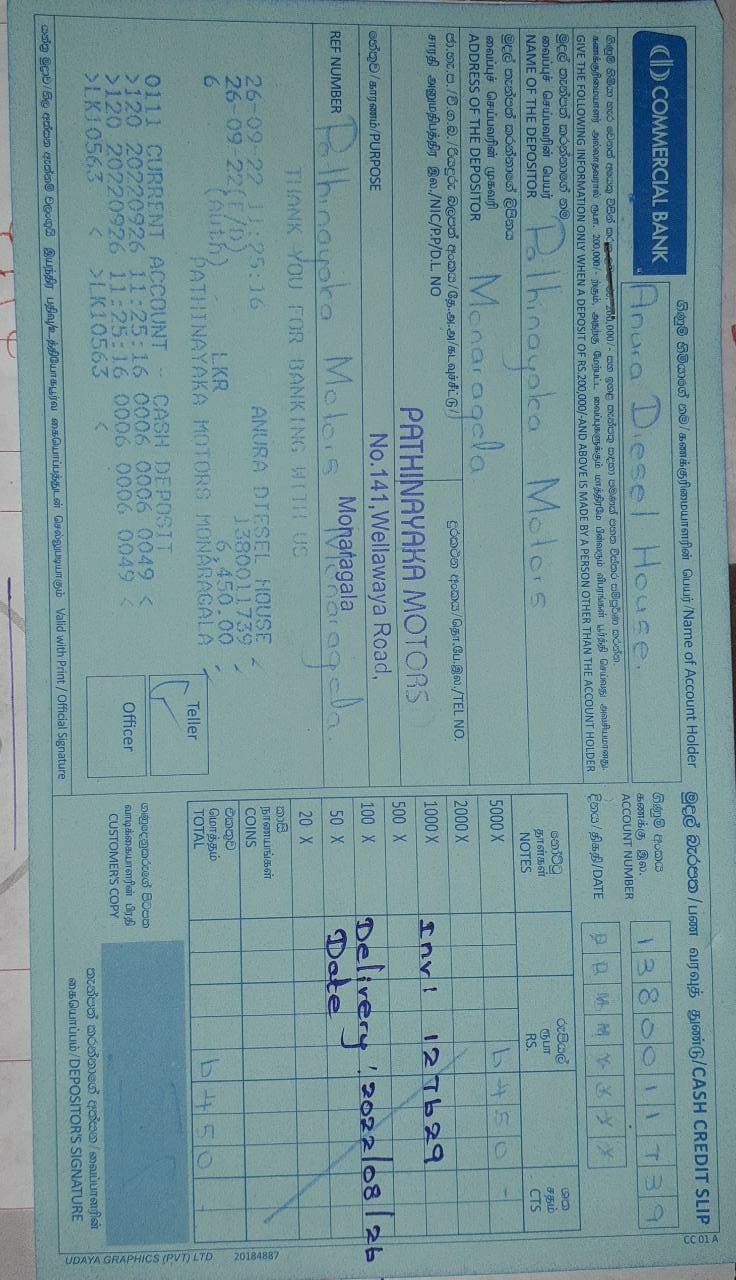 COMMERCIAL BANK
ගිණුම් හිමියාගේ නම / கணக்குரிமையாளரின் பெயர் /Name of Account Holder
Anura Diesel House.
මුදල් බැරපත / பண வரவுத் துண்டு/CASH CREDIT SLIP
CC 01 A
ගිණුම් අංකය
கணக்கு இல.
ACCOUNT NUMBER
1380011739
දිනය திகதி/DATE
D D M M Y Y Y Y
GIVE THE FOLLOWING INFORMATION ONLY WHEN A DEPOSIT OF RS.200,000/-AND ABOVE IS MADE BY A PERSON OTHER THAN THE ACCOUNT HOLDER
මුදල් තැන්පත් කරන්නාගේ නම
வைப்புச் செய்பவரின் பெயர்
NAME OF THE DEPOSITOR
Pathinayaka Motors
මුදල් තැන්පත් කරන්නාගේ ලිපිනය
வைப்புச் செய்பவரின் முகவரி
ADDRESS OF THE DEPOSITOR
Monaragala
சாரதி அனுமதிபத்திர இல./NIC/P.P/D.L NO
දුරකථන අංකය/தொ.பே.இல./TEL NO.
PATHINAYAKA MOTORS
No.141,Wellawaya Road,
Monaragala
හේතුව/காரணம்/PURPOSE
REF NUMBER
Pathinayaka Motors Monaragala.
THANK YOU FOR BANKING WITH US
26-09-22 11:25:16 ANURA DIESEL HOUSE <
26-09-22(E/D) 1380011739 <
6 (Auth) LKR 6,450.00 <
PATHINAYAKA MOTORS MONARAGALA <
0111 CURRENT ACCOUNT - CASH DEPOSIT
>120 20220926 11:25:16 0006 0006 0049 <
>120 20220926 11:25:16 0006 0006 0049 <
>LK10563 < >LK10563 <
Teller
Officer
Valid with Print / Official Signature
නෝට්ටු
தாள்கள்
NOTES
රුපියල්
ரூபா
RS.
ශත
சதம்
CTS
5000 X 6450 -
2000 X
1000 X Inv: 127629
500 X
100 X Delivery: 2022/08/26
50 X Date
20 X
කාසි
நாணயங்கள்
COINS
එකතුව
மொத்தம்
TOTAL
6450 -
ගනුදෙනුකරුගේ පිටපත
வாடிக்கையாளரின் பிரதி
CUSTOMER'S COPY
තැන්පත් කරන්නාගේ අත්සන / வைப்பாளரின்
கையொப்பம்/DEPOSITOR'S SIGNATURE
UDAYA GRAPHICS (PVT) LTD. 20184887